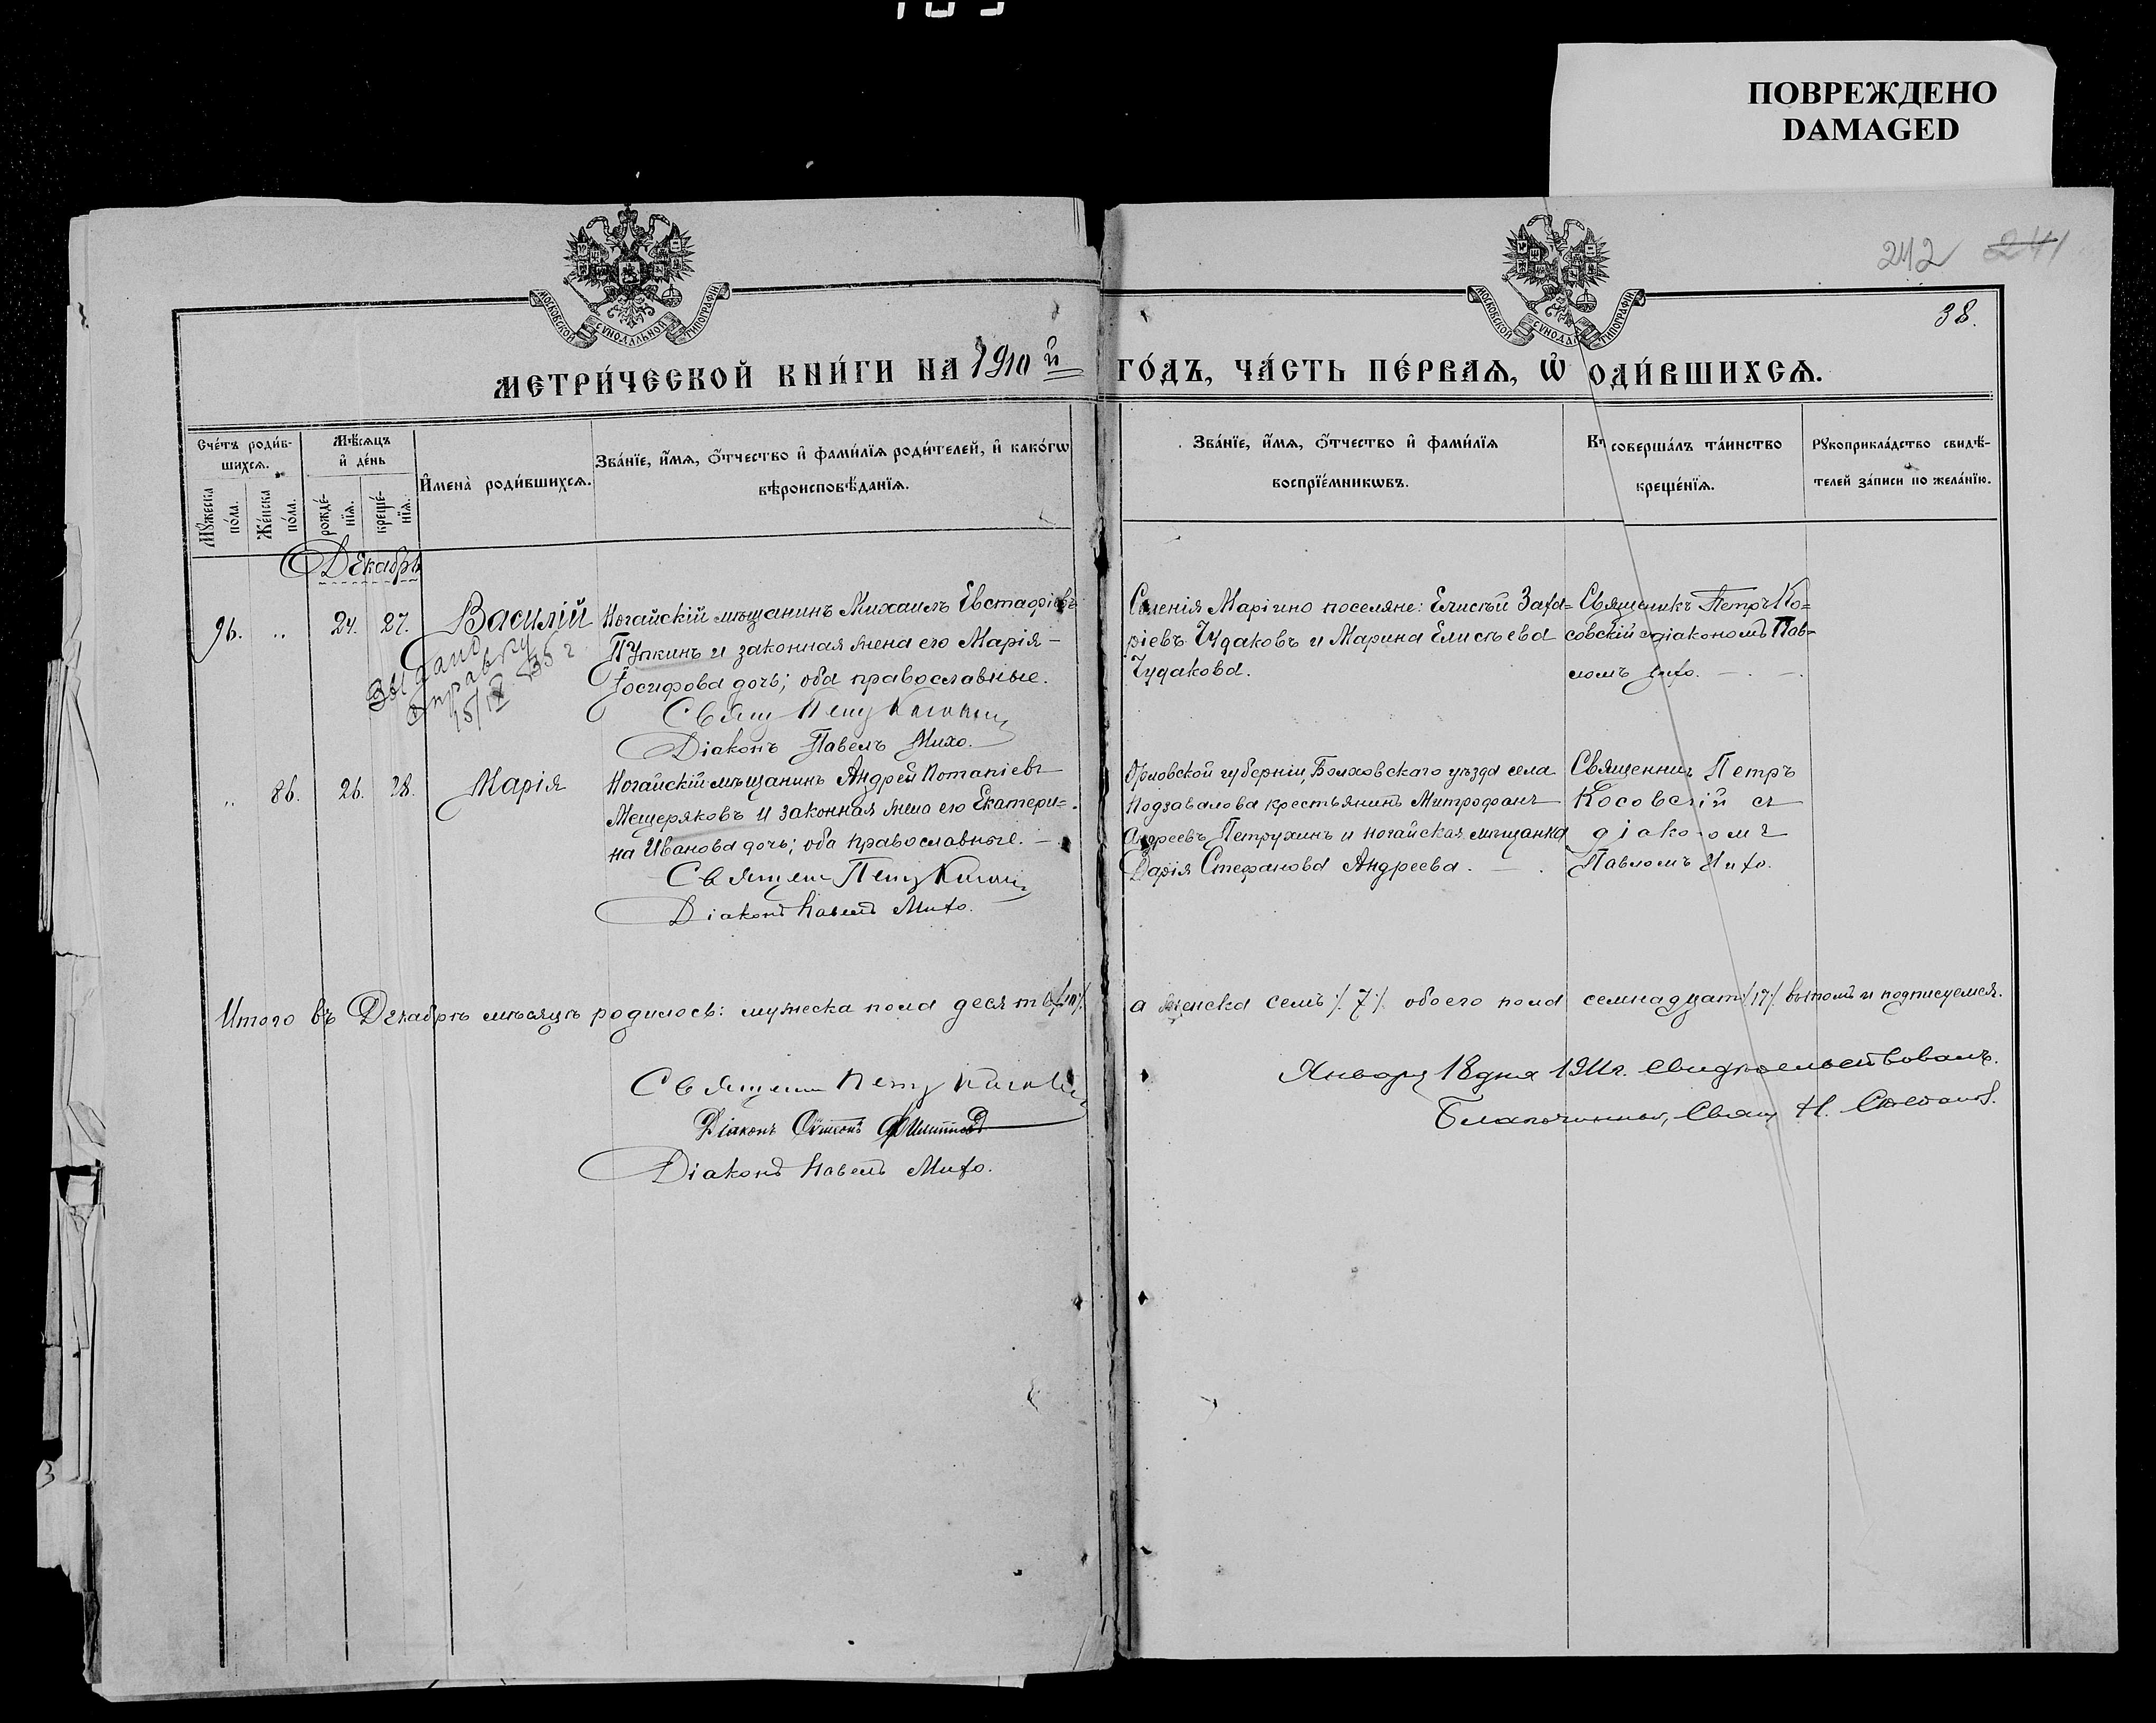 ПОВРЕЖДЕНО
DAMAGED
242 241
38.
МОСКОВСКОЙ СѴНОДАЛЬНОЙ ТИПОГРАФІИ
МОСКОВСКОЙ СѴНОДАЛ ТИПОГРАФІИ
МЕТРИ́ЧЕСКОЙ КНИ́ГИ НА 1910й ГО́ДЪ, ЧА́СТЬ ПЕ́РВАѦ, Ѡ ОДИ́ВШИХСѦ.
Сче́тъ роди́в-
шихсѧ.
Мꙋ́жеска по́ла.
Же́нска по́ла.
Мѣ́сѧцъ и҆ де́нь
рожде́-
нїѧ.
креще́-
нїѧ.
И҆мена̀ роди́вшихсѧ.
Зва́нїе, и҆́мѧ, ѻ҆́тчество и҆ фами́лїѧ роди́телей, и҆ како́гѡ
вѣроисповѣ́данїѧ.
Зва́нїе, и҆́мѧ, ѻ҆́тчество и҆ фами́лїѧ
воспрїе́мникѡвъ.
соверша́лъ та́инство
креще́нїѧ.
Рꙋкоприкла́дство свидѣ́-
телей за́писи по жела́нїю.
Декабрь
96. „ 24. 27. Василій
Ногайскій мѣщанинъ Михаилъ Евстафіевъ
Пупкинъ и законная жена его Марія –
Іосифова дочь; оба православные.
Свящ Петръ
Діаконъ Павелъ Михо.
Выдано
справку
15/IX 35 г
Селенія Марігино поселяне: Елисѣй Заха=
ріевъ Чудаковъ и Марина Елисѣева
Чудакова.
Священикъ Петръ Ко=
совскій с діакономъ Пав=
ломъ Михо. – . – .
„ 86. 26. 28. Марія
Ногайскій мѣщанинъ Андрей Потапіевъ
Мещеряковъ и законная жена его Екатери=
на Иванова дочь; оба православные. –
Священ Петръ
Діаконъ Павелъ Михо.
Орловской губерніи, Болховскаго уѣзда села
Подзавалова крестьянинъ Митрофанъ
Андреевъ Петрухинъ и ногайская мѣщанка
Дарія Стефанова Андреева. – .
Священникъ Петръ
Косовскій съ
діакономъ
Павломъ Михо.
Итого въ Декабрѣ мѣсяцѣ родилось: мужеска пола десять /10/. а женска семь /. 7 /. обоего пола семнадцать /17/. въ томъ и подписуемся.
Священ Петръ
Діаконъ
Діаконъ Павелъ Михо.
Января 18 дня 1911 г. Свидѣтельствовалъ.
Благочинный, Свящ Н.